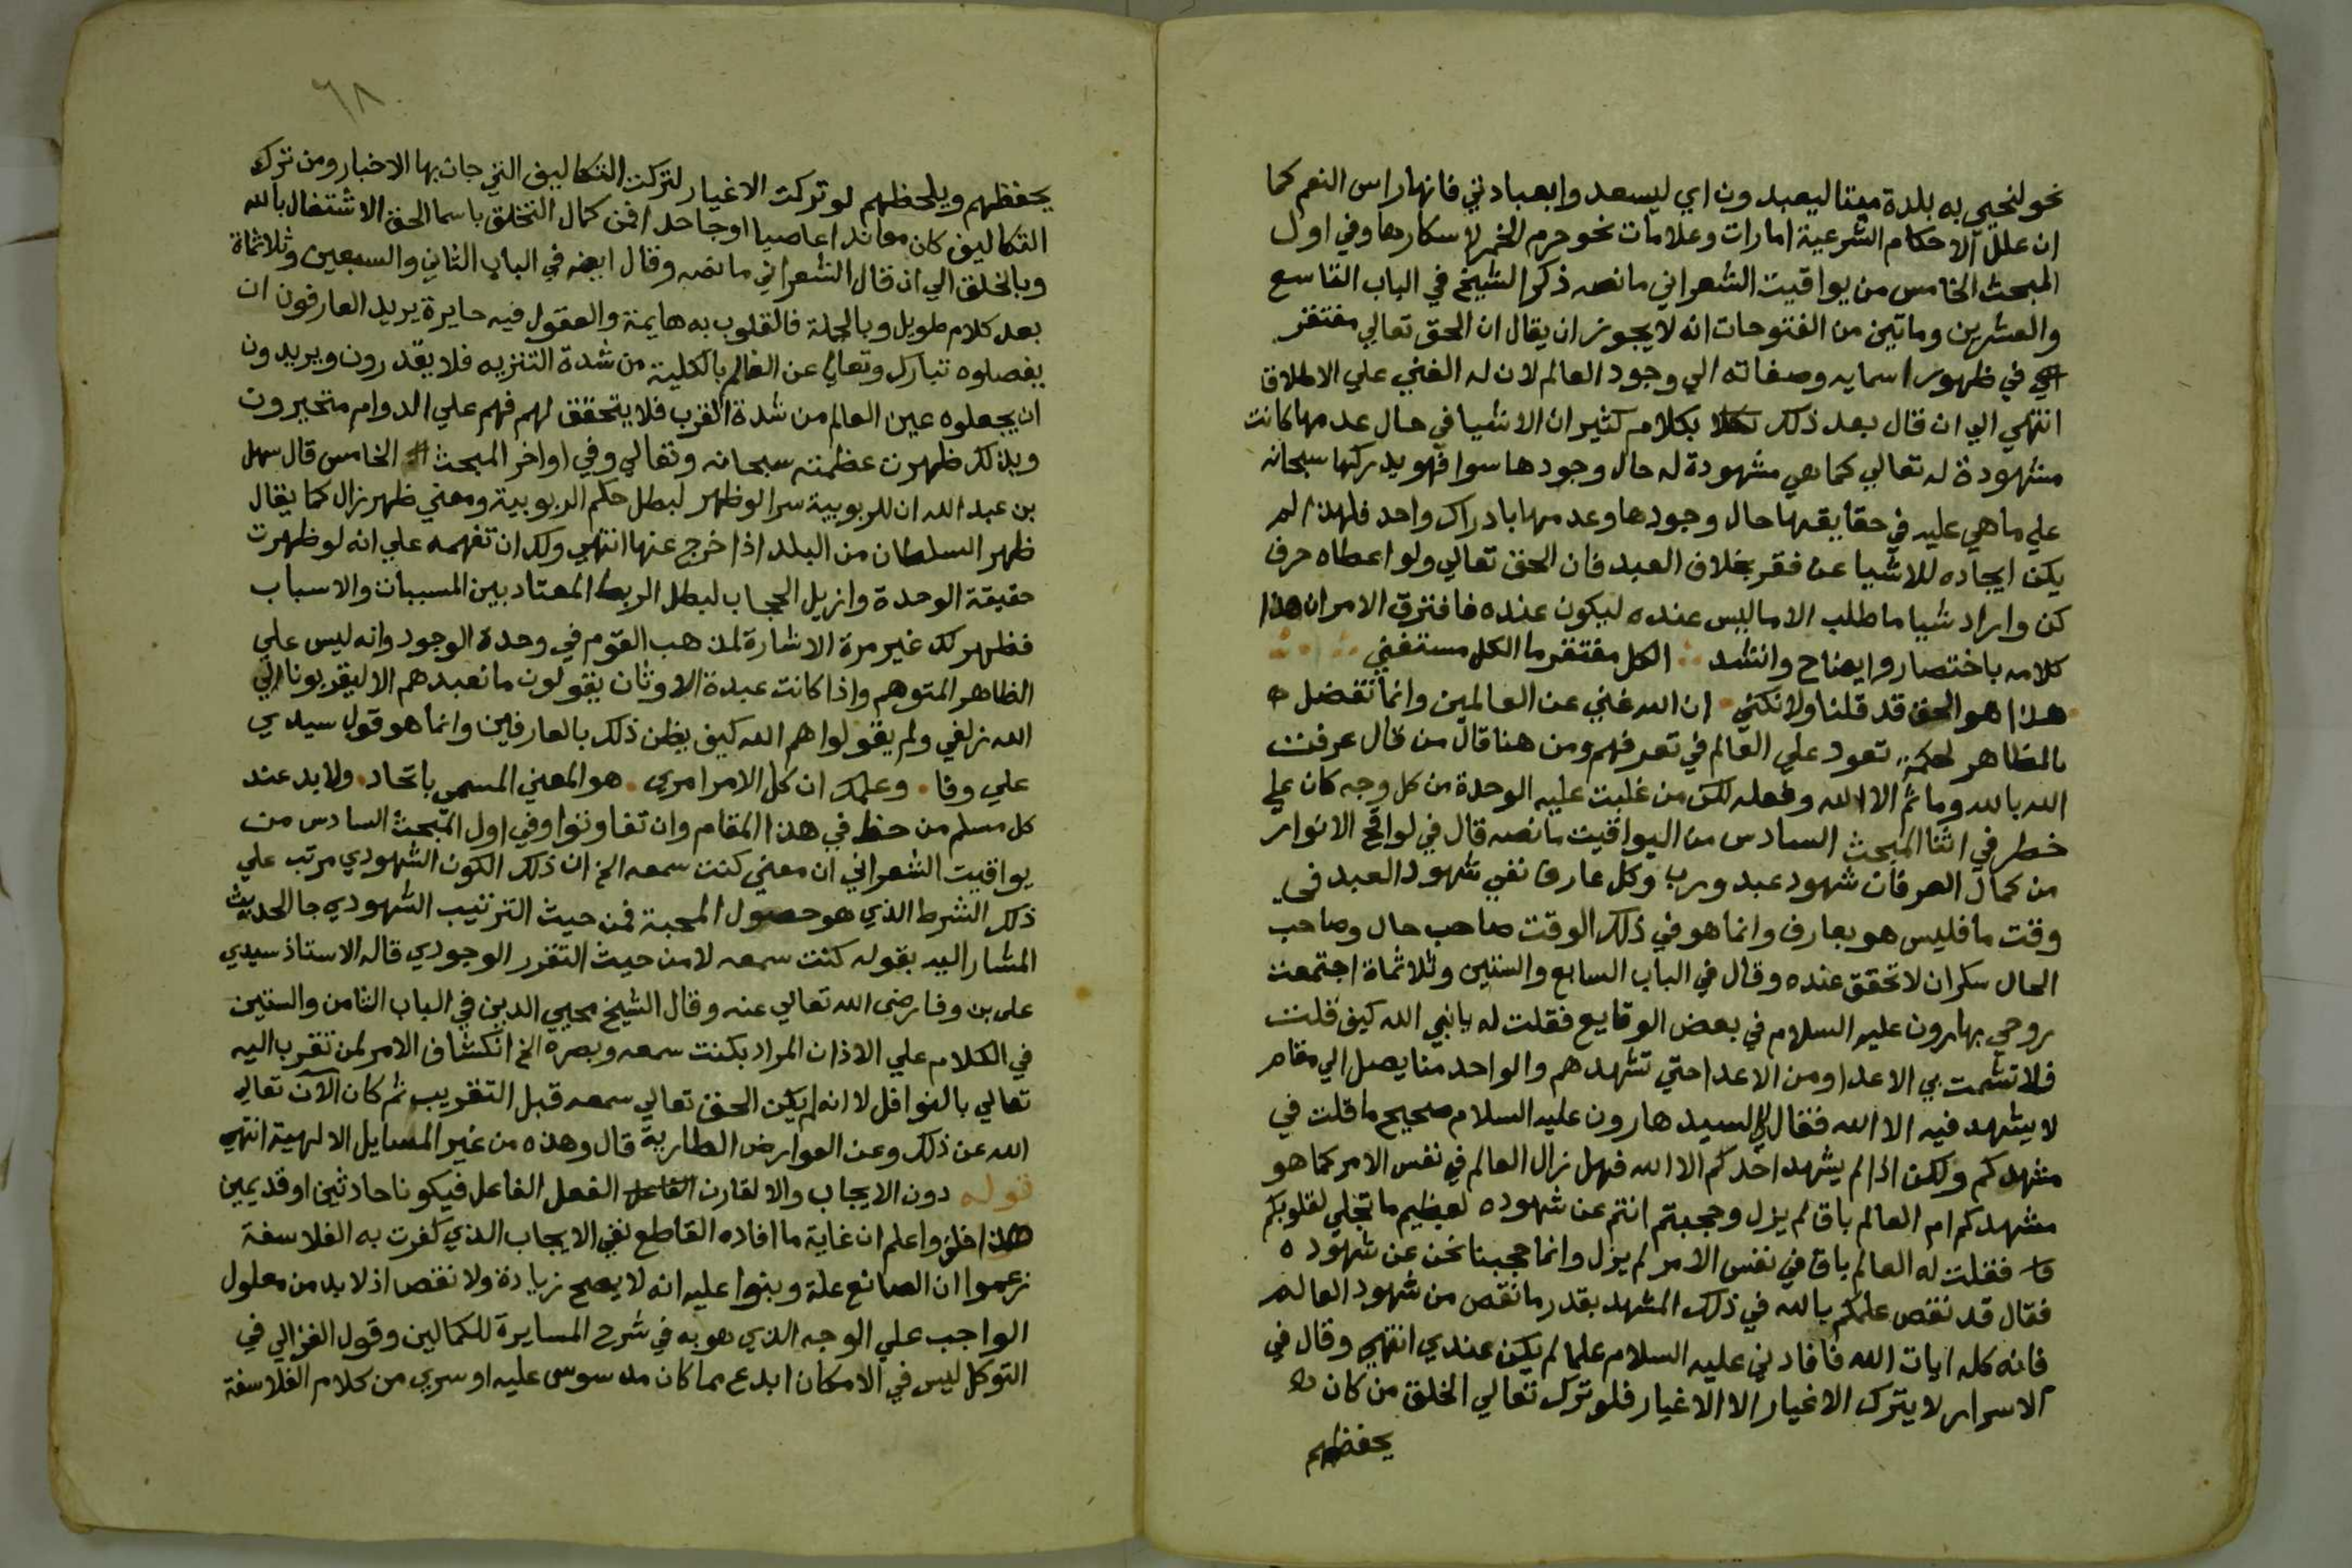 نحو لنحيي به بلدة ميتا ليعبدون اي ليسعدوا بعبادتي فانها راس النعم كما
ان علل الاحكام الشرعية امارات وعلامات نحو حرم الخمر لاسكارها وفي اول
المبحث الخامس من يواقيت الشعراني ما نصه ذكر الشيخ في الباب التاسع
والعشرين وماتين من الفتوحات انه لا يجوز ان يقال ان الحق تعالي مفتقر
في ظهور اسمايه وصفاته الي وجود العالم لان له الغني علي الاطلاق
انتهي الي ان قال بعد ذلك بكلام كثير ان الاشيا في حال عدمها كانت
مشهودة له تعالي كما هي مشهودة له حال وجودها سوا فهو يدركها سبحانه
علي ما هي عليه في حقايقها حال وجودها وعدمها بادراك واحد فلهذا لم
يكن ايجاده للاشيا عن فقر بخلاف العبد فان الحق تعالي ولو اعطاه حرف
كن واراد شيا ما طلب الا ما ليس عنده ليكون عنده فافترق الامران هذا
كلامه باختصار وايضاح وانشد الكل مفتقر ما الكل مستغني
هذا هو الحق قد قلنا ولا نكني ان الله غني عن العالمين وانما تفضل
بالمظاهر لحكمة تعود علي العالم في تعرفهم ومن هنا قال من قال عرفت
الله بالله وما ثم الا الله وفعله لكن من غلبت عليه الوحدة من كل وجه كان علي
خطر في اثنا المبحث السادس من اليواقيت ما نصه قال في لواقح الانوار
من كمال العرفان شهود عبد ورب وكل عارف نفي شهود العبد في
وقت ما فليس هو بعارف وانما هو في ذلك الوقت صاحب حال وصاحب
الحال سكران لا تحقق عنده وقال في الباب السابع والستين وثلاثماة اجتمعت
روحي بهارون عليه السلام في بعض الوقايع فقلت له يا نبي الله كيف قلت
فلا تشمت بي الاعدا ومن الاعدا حتي تشهدهم والواحد منا يصل الي مقام
لا يشهد فيه الا الله فقال لي السيد هارون عليه السلام صحيح ما قلت في
مشهدكم ولكن اذا لم يشهد احدكم الا الله فهل زال العالم في نفس الامر كما هو
مشهدكم ام العالم باق لم يزل وحجبتم انتم عن شهوده لعظيم ما تجلي لقلوبكم
فقلت له العالم باق في نفس الامر لم يزل وانما حجبنا نحن عن شهوده
فقال قد نقص علمكم بالله في ذلك المشهد بقدر ما نقص من شهود العالم
فانه كله ايات الله فافادني عليه السلام علما لم يكن عندي انتهي وقال في
الاسرار لا يترك الاغيار الا الاغيار فلو ترك تعالي الخلق من كان
يحفظهم
٦٨
يحفظهم ويلحظهم لو تركت الاغيار لتركت التكاليف التي جات بها الاخبار ومن ترك
التكاليف كان معاندا عاصيا او جاحدا فمن كمال التخلق باسما الحق الاشتغال بالله
وبالخلق الي ان قال الشعراني ما نصه وقال ايضه في الباب الثاني والسبعين وثلاثماة
بعد كلام طويل وبالجملة فالقلوب به هايمة والعقول فيه حايرة يريد العارفون ان
يفصلوه تبارك وتعالي عن العالم بالكلية من شدة التنزيه فلا يقدرون ويريدون
ان يجعلوه عين العالم من شدة القرب فلا يتحقق لهم فهم علي الدوام متحيرون
وبذلك ظهرت عظمته سبحانه وتعالي وفي اواخر المبحث الخامس قال سهل
بن عبد الله ان للربوبية سرا لو ظهر لبطل حكم الربوبية ومعني ظهر زال كما يقال
ظهر السلطان من البلد اذا خرج عنها انتهي ولك ان تفهمه علي انه لو ظهرت
حقيقة الوحدة وازيل الحجاب لبطل الربط المعتاد بين المسببات والاسباب
فظهر لك غير مرة الاشارة لمذهب القوم في وحدة الوجود وانه ليس علي
الظاهر المتوهم واذا كانت عبدة الاوثان يقولون ما نعبدهم الا ليقربونا الي
الله زلفي ولم يقولوا هم الله كيف يظن ذلك بالعارفين وانما هو قول سيدي
علي وفا وعلمك ان كل الامر امري هو المعني المسمي باتحاد ولا بد عند
كل مسلم من حظ في هذا المقام وان تفاوتوا وفي اول المبحث السادس من
يواقيت الشعراني ان معني كنت سمعه الخ ان ذلك الكون الشهودي مرتب علي
ذلك الشرط الذي هو حصول المحبة فمن حيث الترتيب الشهودي جا الحديث
المشار اليه بقوله كنت سمعه لا من حيث التقرر الوجودي قاله الاستاذ سيدي
علي بن وفا رضي الله تعالي عنه وقال الشيخ محيي الدين في الباب الثامن والستين
في الكلام علي الاذان المراد بكنت سمعه وبصره الخ انكشاف الامر لمن تقرب اليه
تعالي بالنوافل لا انه لم يكن الحق تعالي سمعه قبل التقريب ثم كان الآن تعالي
الله عن ذلك وعن العوارض الطارية قال وهذه من غير المسايل الالهية انتهي
قوله دون الايجاب والا لقارن الفعل الفاعل فيكونا حادثين او قديمين
هذا خلق واعلم ان غاية ما افاده القاطع نفي الايجاب الذي كفرت به الفلاسفة
زعموا ان الصانع علة وبنوا عليه انه لا يصح زيادة ولا نقص اذ لا بد من معلول
الواجب علي الوجه الذي هو به في شرح المسايرة للكمالين وقول الغزالي في
التوكل ليس في الامكان ابدع مما كان مدسوس عليه او سري من كلام الفلاسفة